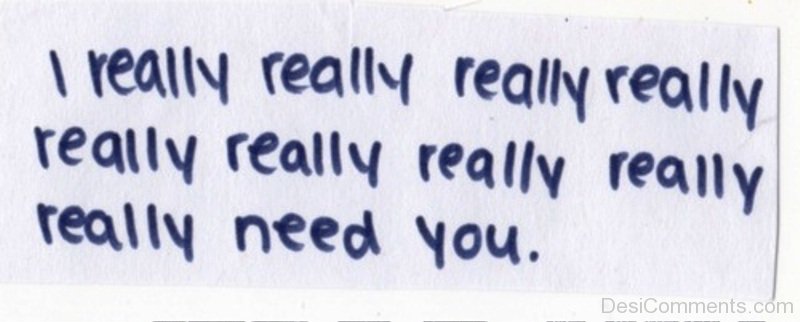 I really really really really
really really really really
really need you.
DesiComments.com